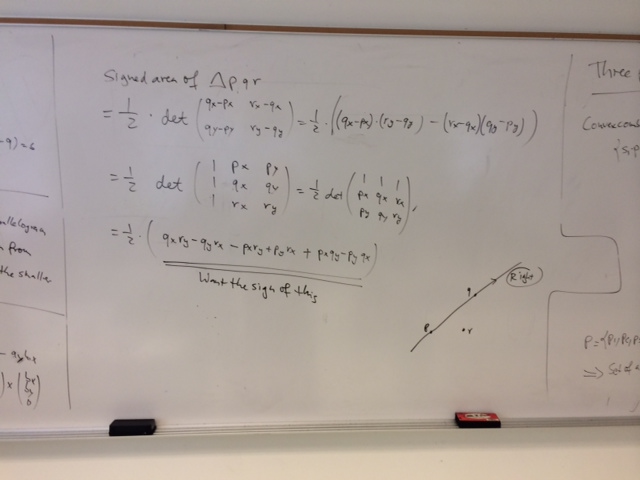 Signed area of Δp,qr
= 1/2 · det ( qx-px rx-qx
qy-py ry-qy ) = 1/2 · ((qx-px)·(ry-qy) - (rx-qx)(qy-py))
= 1/2 det ( 1 px py
1 qx qy
1 rx ry ) = 1/2 det ( 1 1 1
px qx rx
py qy ry ),
= 1/2 · ( qxry-qyrx - pxry+pyrx + pxqy-pyqx )
Want the sign of this
Right
q
p
r
-q)=6
from
the smaller
Three
P={P1,P2,P3
=> Set of